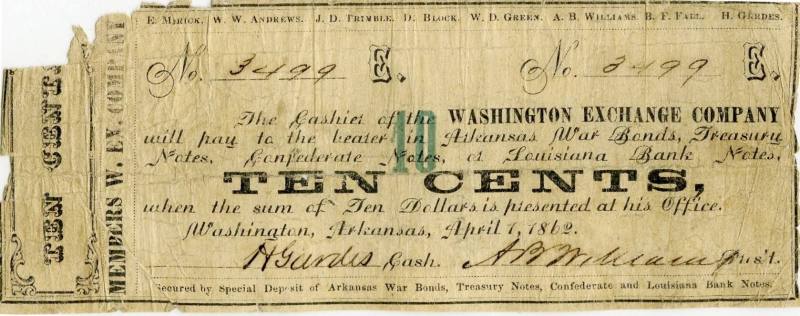 E. Mirick, W. W. Andrews. J. D. Trimble, D. Block, W. D. Green, A. B. Williams, B. F. Fall, H. Gerdes.
No. 3499 E. No. 3499 E.
The Cashier of the WASHINGTON EXCHANGE COMPANY
will pay to the bearer in Arkansas War Bonds, Treasury
Notes, Confederate Notes, or Louisiana Bank Notes,
10
TEN CENTS,
when the sum of Ten Dollars is presented at his Office.
Washington, Arkansas, April 7, 1862.
H Gerdes Cash. A B Williams Pres't.
Secured by Special Deposit of Arkansas War Bonds, Treasury Notes, Confederate and Louisiana Bank Notes.
TEN CENTS
MEMBERS W. EX. COMPANY